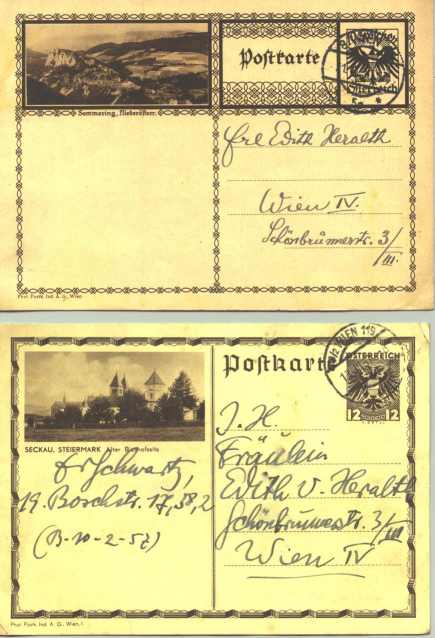 Postkarte
Semmering, Niederösterr.
Frl Edith Heralth
Wien IV.
Schönbrunnerstr. 3/
III.
Phot. Pork. Ind. A. G., Wien
WIEN 119
Postkarte
ÖSTERREICH
12 12
SECKAU, STEIERMARK Alter Bischofsitz
J. H.
Fräulein
Edith v. Heralth
Schönbrunnerstr. 3/III
Wien IV
Schwartz,
19. Boschstr. 17, 38, 2
(B-10-2-57)
Phot. Pork. Ind. A. G., Wien, I